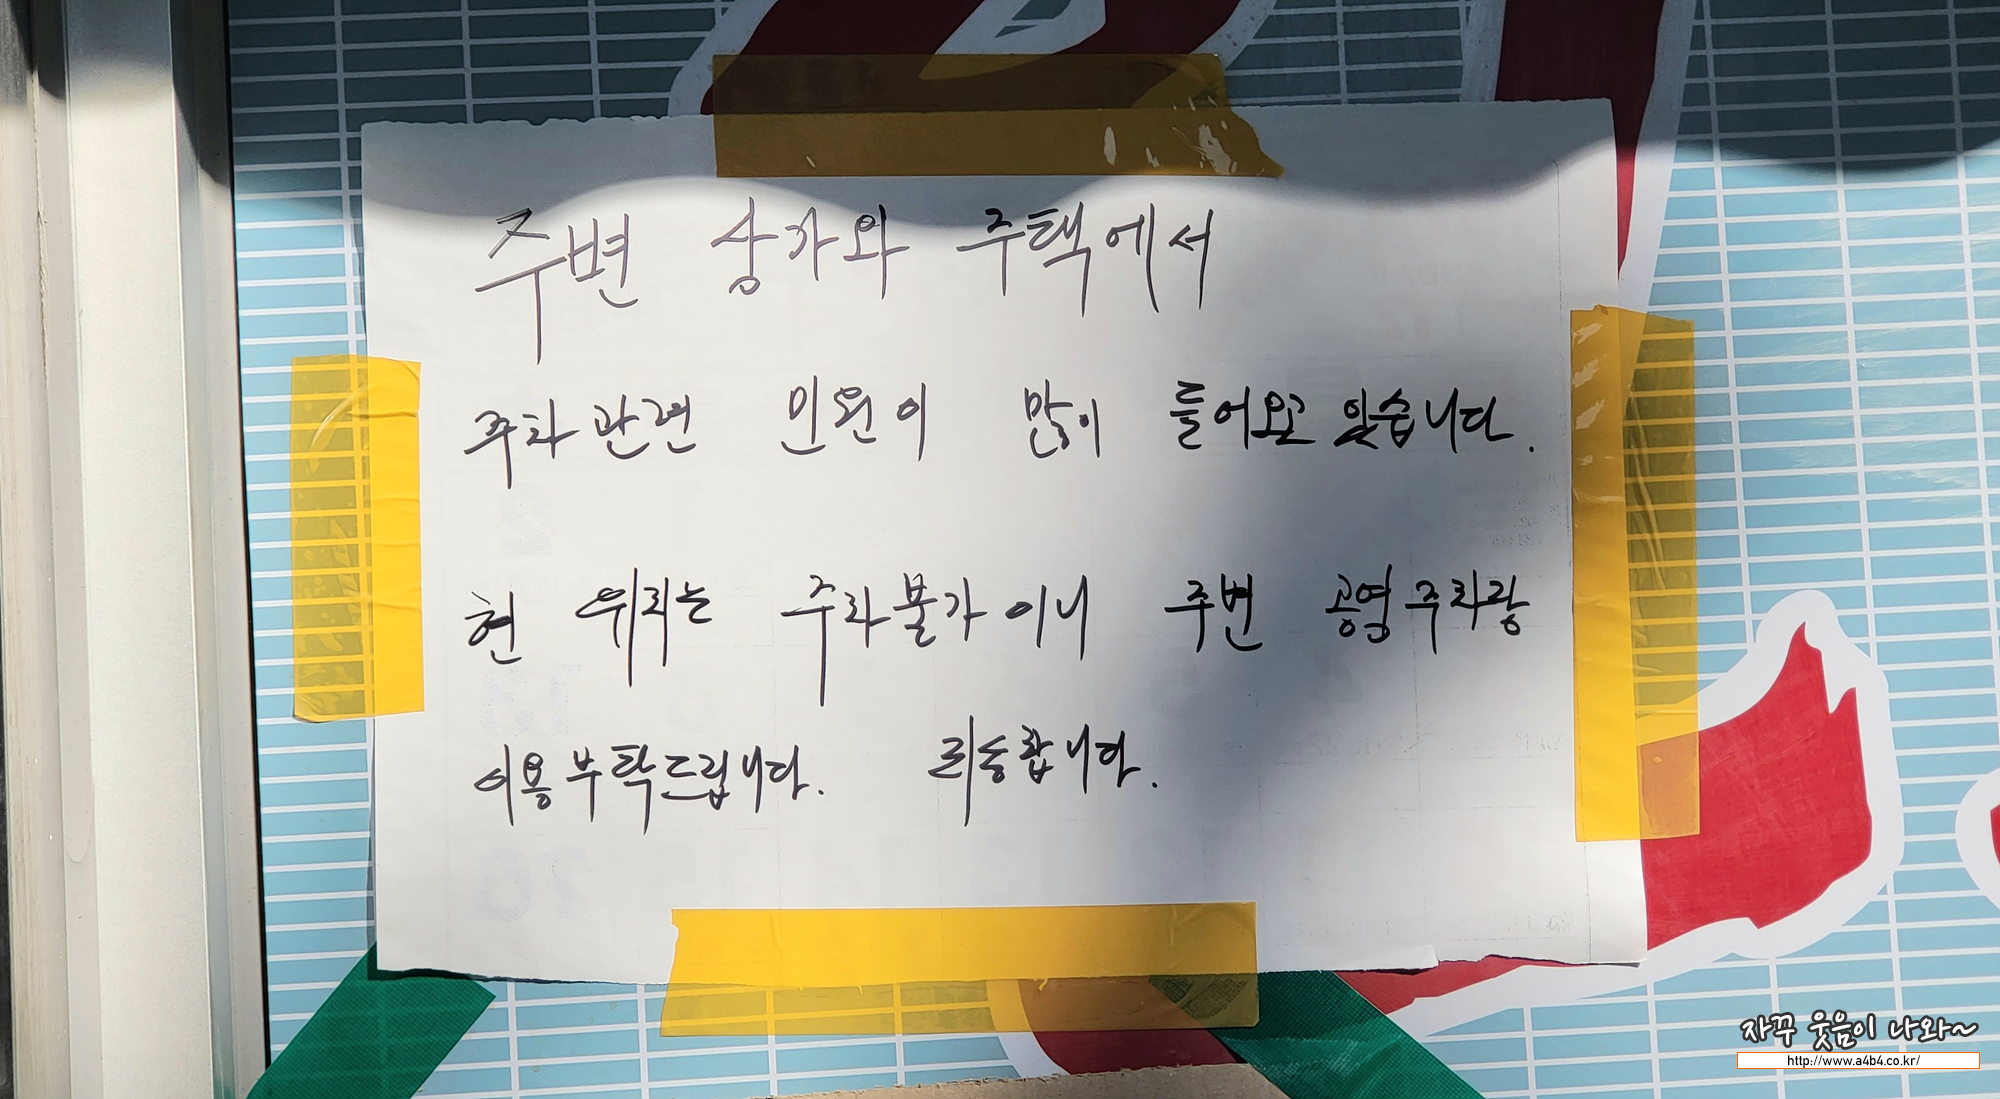 주변 상가와 주택에서
주차관련 민원이 많이 들어오고 있습니다.
현 위치는 주차불가이니 주변 공영주차장
이용부탁드립니다. 죄송합니다.
자꾸 웃음이 나와~
http://www.a4b4.co.kr/